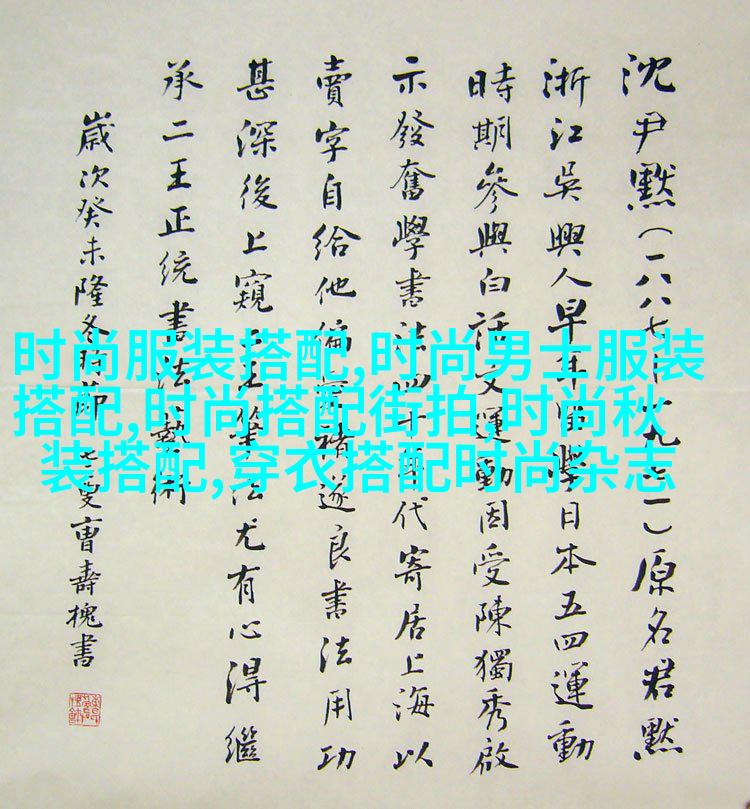 沈尹默(一八八七—一九七一)原名君默
浙江吳興人早年留學日本五四運動
時期參與白話文運動因受陳獨秀啟
示發奮學書法四十年代寄居上海以
賣字自給他寫褚遂良書法用功
甚深後上窺二王筆法尤有心得繼
承二王正統書法藝術
歲次癸未隆冬時節叟曹壽槐書
时尚服装搭配,时尚男士服装
搭配,时尚搭配街拍,时尚秋
装搭配,穿衣搭配时尚杂志